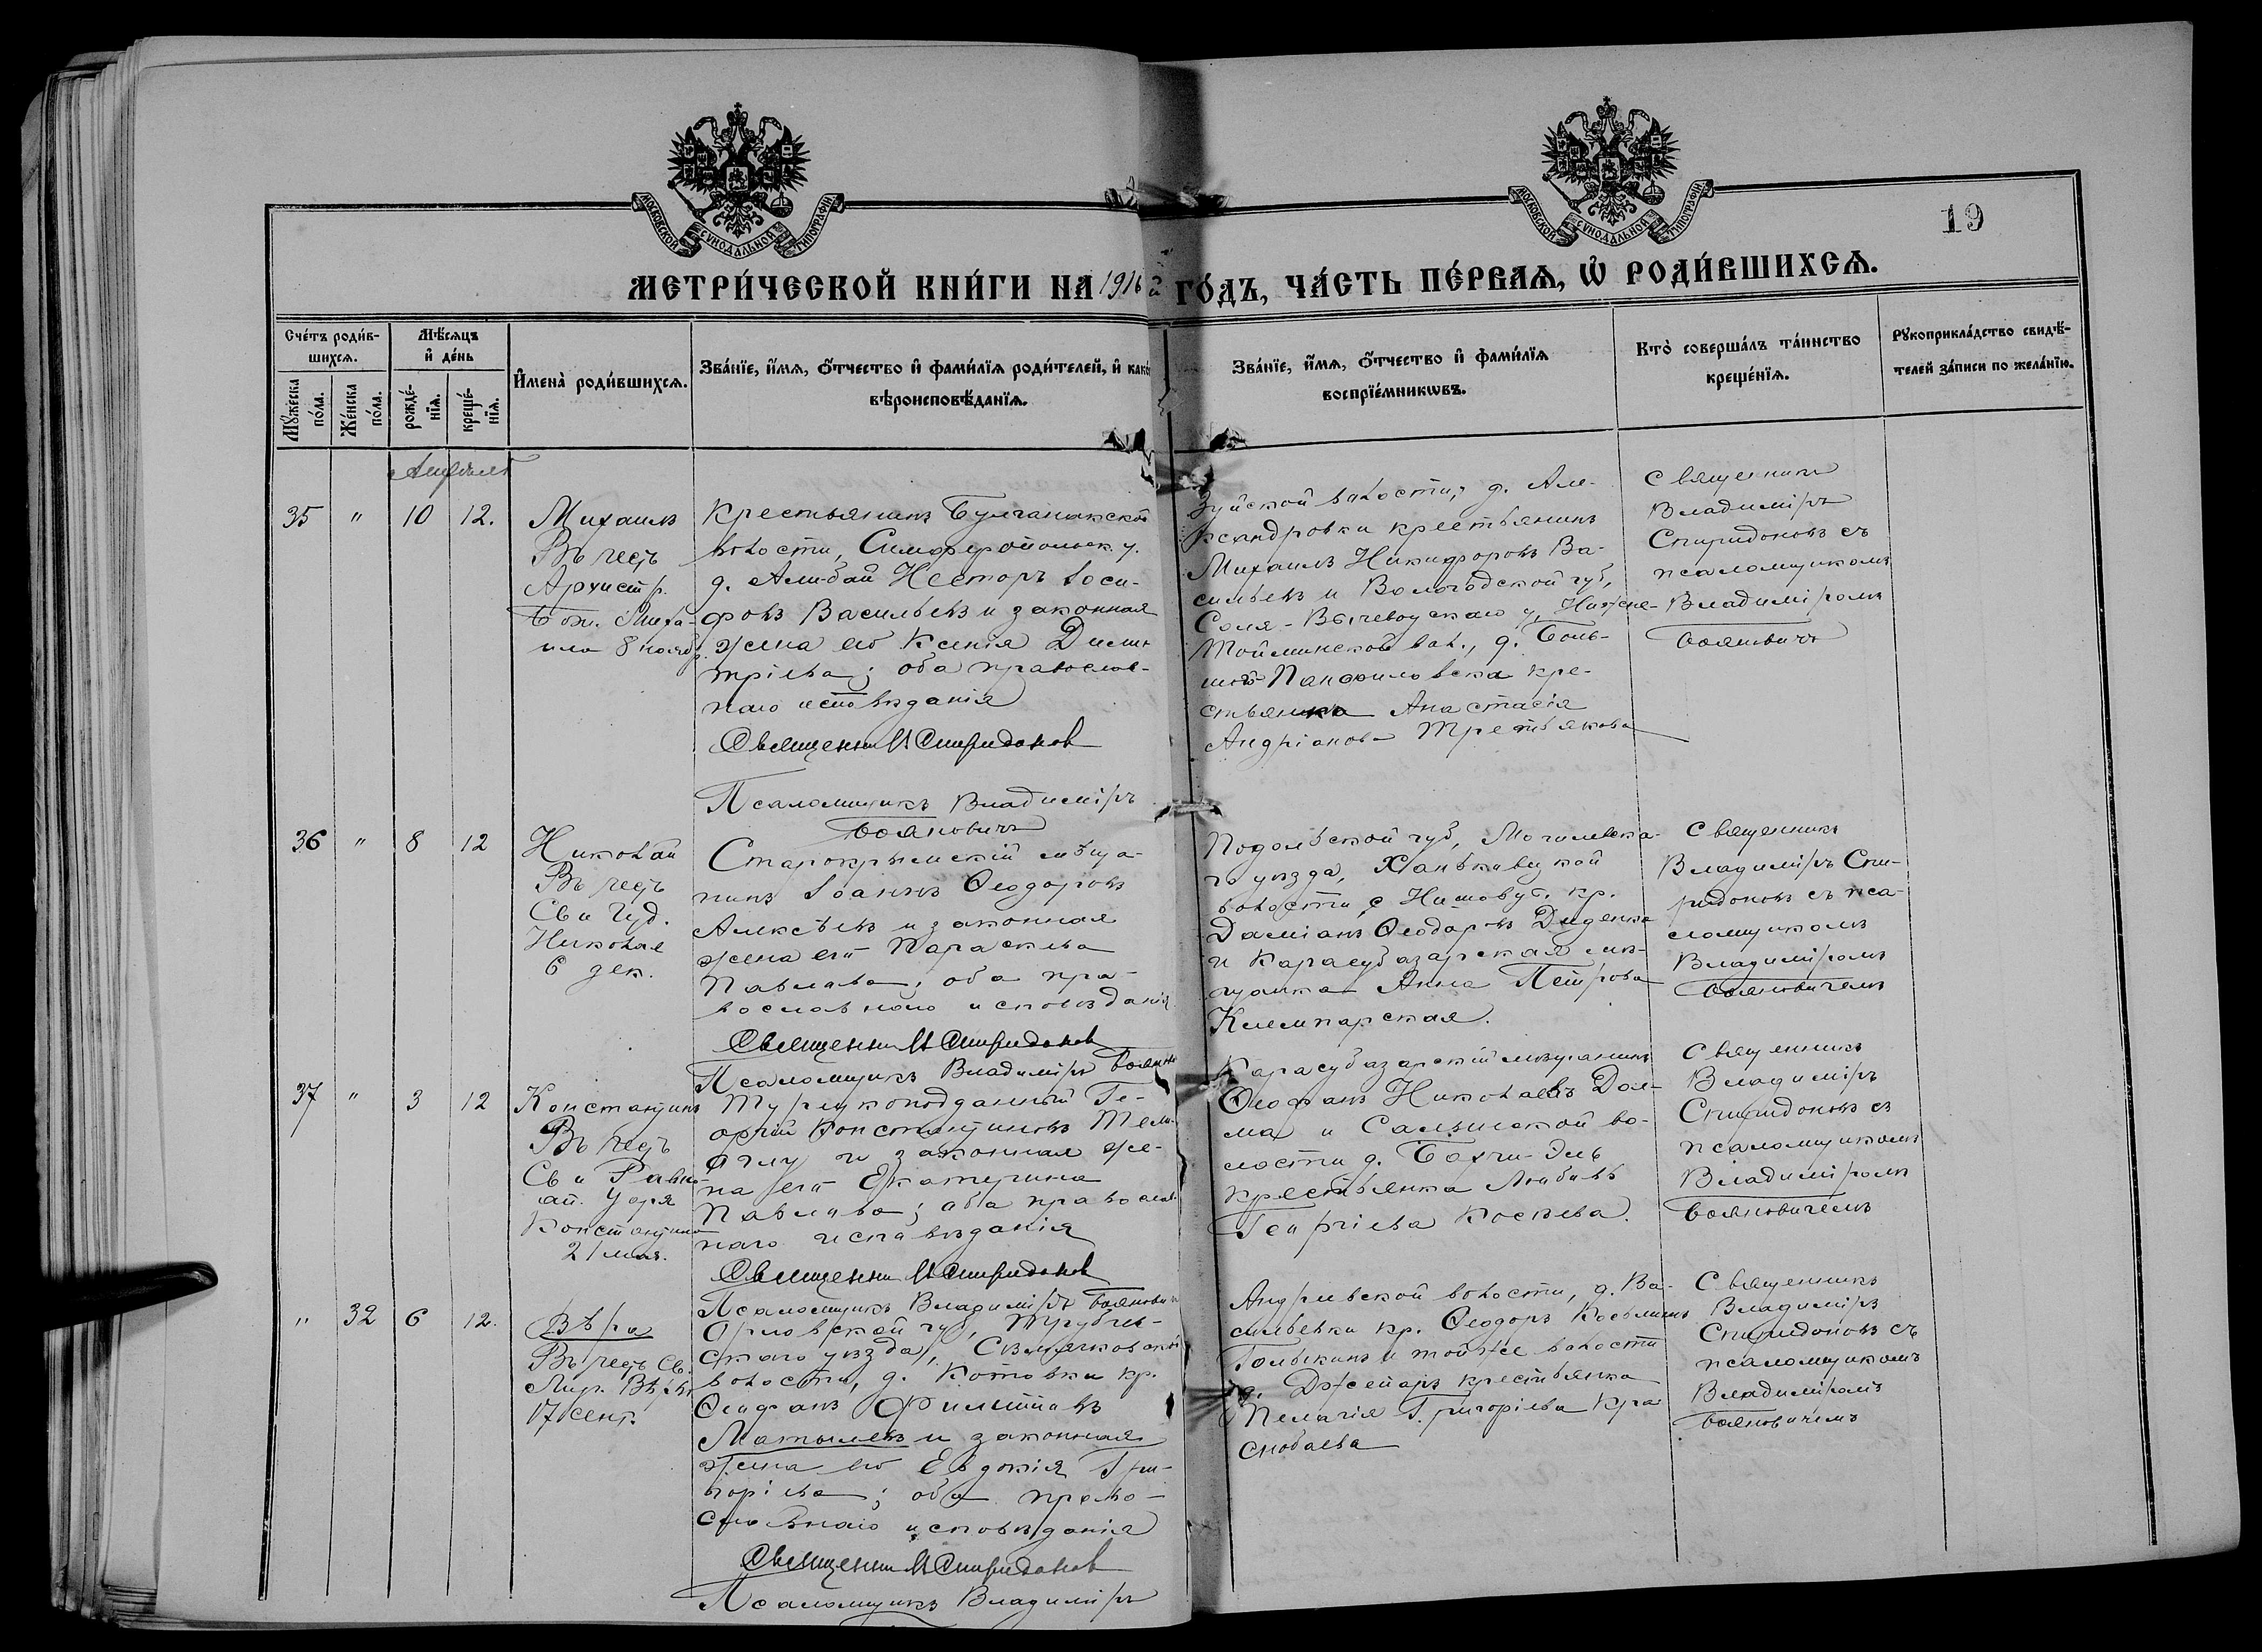 МОСКОВСКОЙ СѴНОДАЛЬНОЙ ТИПОГРАФІИ
МОСКОВСКОЙ СѴНОДАЛЬНОЙ ТИПОГРАФІИ
19
МЕТРИ́ЧЕСКОЙ КНИ́ГИ НА 1916 й ГО́ДЪ, ЧА́СТЬ ПЕ́РВАѦ, Ѡ҆ РОДИ́ВШИХСѦ.
Сче́тъ роди́в-
шихсѧ.
Мꙋ́жеска по́ла.
Же́нска по́ла.
Мѣ́сѧцъ
и҆ де́нь
рожде́-
нїѧ.
креще́-
нїѧ.
И҆мена̀ роди́вшихсѧ.
Зва́нїе, и҆́мѧ, ѻ҆́тчество и҆ фами́лїѧ роди́телей, и҆ како́гѡ
вѣроисповѣ́данїѧ.
Зва́нїе, и҆́мѧ, ѻ҆́тчество и҆ фами́лїѧ
воспрїе́мникѡвъ.
Кто̀ соверша́лъ та́инство
креще́нїѧ.
Рꙋкоприкла́дство свидѣ́-
телей за́писи по жела́нїю.
Апрѣль
35 " 10 12.
Михаилъ
Въ честь
Архистр.
Бож. Миха-
ила 8 нояб.
Крестьянинъ Булганакской
волости, Симферопольск. у.
д. Али-бай Несторъ Іоси-
фовъ Васильевъ и законная
жена его Ксенія Дими-
тріева; оба православ-
наго исповѣданія
Священник Вл Спиридонов
Псаломщикъ Владиміръ
Бояновичъ
Зуйской волости, д. Але-
ксандровки крестьянинъ
Михаилъ Никифоровъ Ва-
сильевъ и Вологодской губ.,
Соле-Вычегодскаго у. Нижне-
Тойминской вол., д. Боль-
шой Панфиловска кре-
стьянка Анастасія
Андріанова Третьякова
Священникъ
Владиміръ
Спиридоновъ съ
псаломщикомъ
Владиміромъ
Бояновичъ
36 " 8 12
Николай
Въ честь
Св и Чуд.
Николая
6 дек.
Старокрымскій мѣща-
нинъ Іоаннъ Ѳеодоровъ
Алексѣевъ и законная
жена его Параскева
Павлова; оба пра-
вославнаго исповѣданія
Священник Вл Спиридонов
Псаломщикъ Владиміръ Боянови
Подольской губ, Могилевска-
го уѣзда, Ханьковецкой
волости, с. кр.
Даміанъ Ѳеодоровъ Диденко
и Карасубазарская мѣ-
щанка Анна Петрова
Клемпарская.
Священникъ
Владиміръ Спи-
ридоновъ съ пса-
ломщикомъ
Владиміромъ
Бояновичемъ
37 " 3 12
Константинъ
Въ честь
Св и Равно-
ап. Царя
Константина
21 мая.
Турецкоподданный Ге-
оргій Константиновъ
и законная же-
на его Екатерина
Павлова; оба православ-
наго исповѣданія
Священник Вл Спиридонов
Псаломщикъ Владиміръ Боянович
Карасубазарскій мѣщанинъ
Ѳеофанъ Николаевъ Дол-
ма и Салынской во-
лости д. Бахчи-Эль
крестьянка Любовь
Георгіева Косяева.
Священникъ
Владиміръ
Спиридоновъ съ
псаломщикомъ
Владиміромъ
Бояновичемъ
" 32 6 12.
Вѣра
Въ честь Св.
Муч. Вѣры
17 сент.
Орловской губ, Трубчев-
скаго уѣзда,
волости, д. Котовки кр.
Ѳеофанъ Филипповъ
Матылевъ и законная
жена его Евдокія Гри-
горіева; оба право-
славнаго исповѣданія
Священник Вл Спиридонов
Псаломщикъ Владиміръ
Андреевской волости, д. Ва-
сильевки кр. Ѳеодоръ Косьминъ
Голыкинъ и той же волости
д. Джепаръ крестьянка
Пелагія Григоріева Кра
снобаева
Священникъ
Владиміръ
Спиридоновъ съ
псаломщикомъ
Владиміромъ
Бояновичемъ